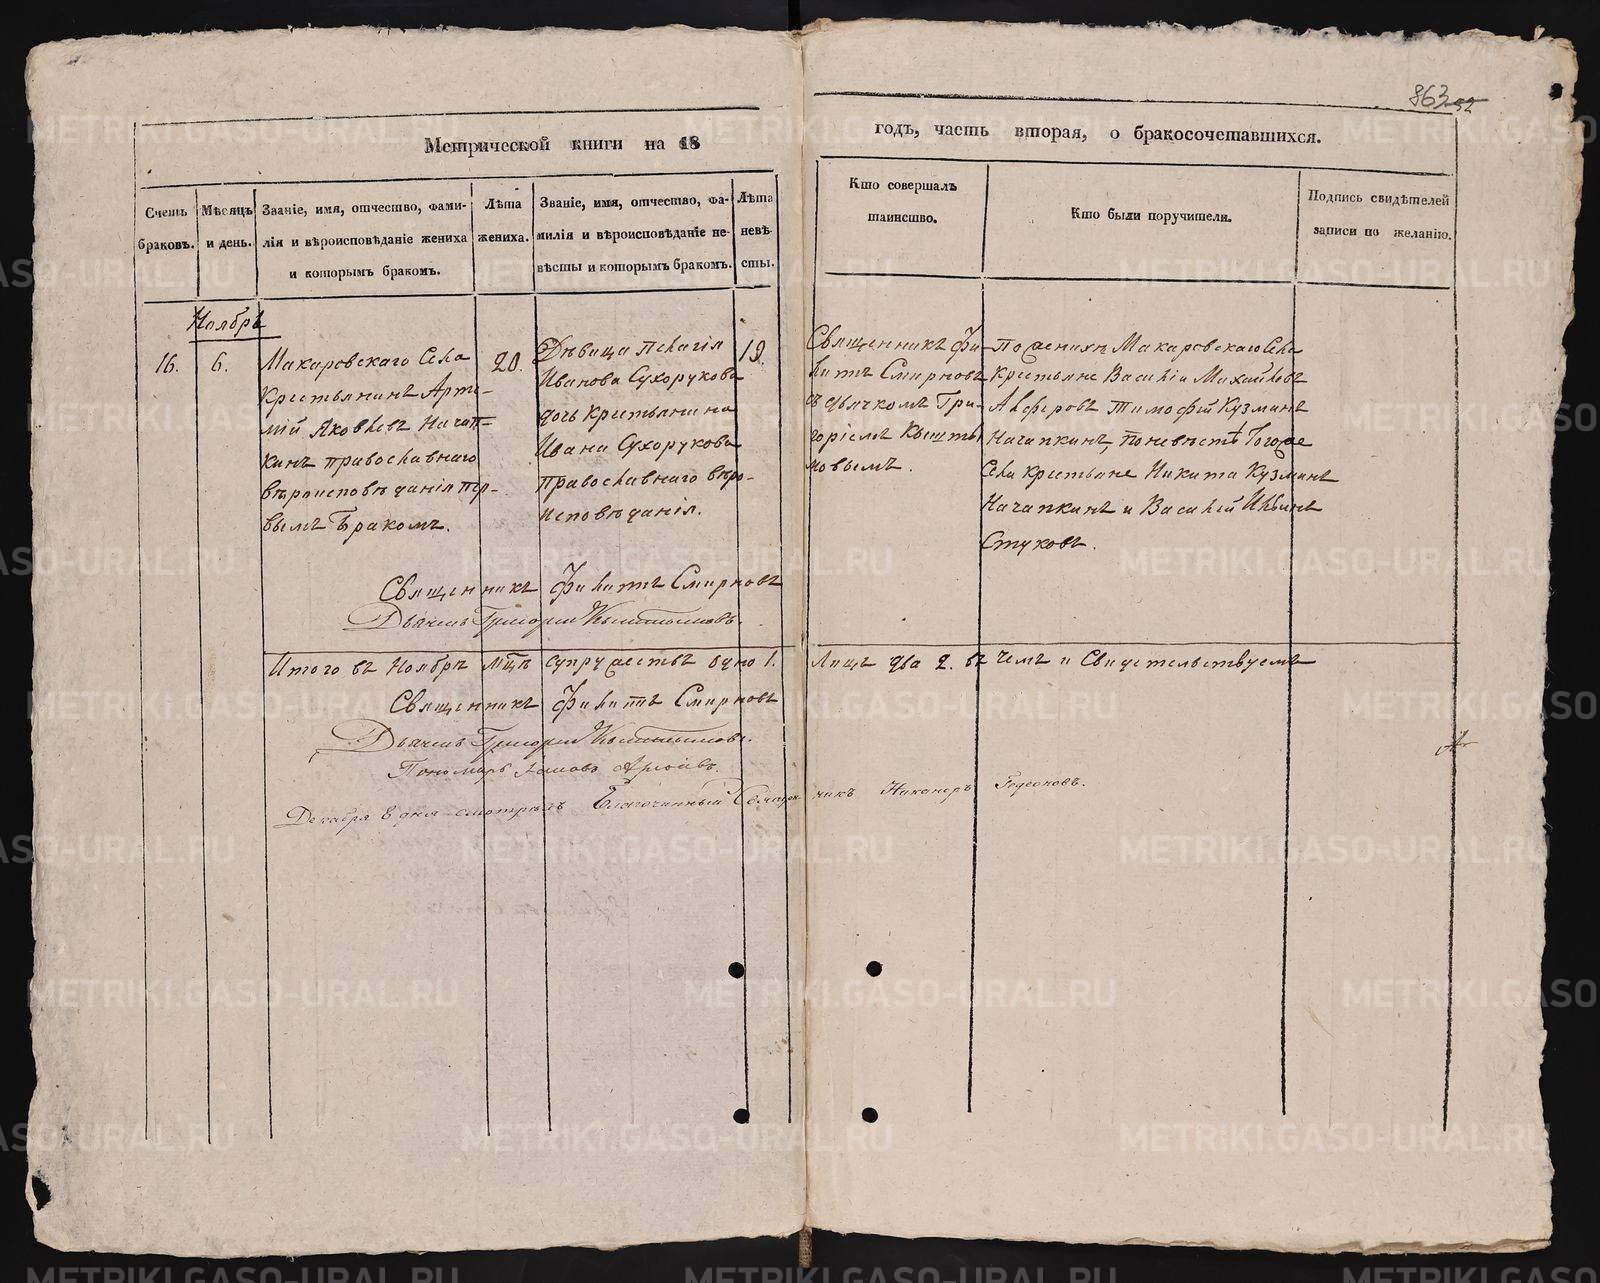 863 52
Метрической книги на 18
годъ, часть вторая, о бракосочетавшихся.
Счетъ
браковъ.
Мѣсяцъ
и день.
Званіе, имя, отчество, фами-
лія и вѣроисповѣданіе жениха
и которымъ бракомъ.
Лѣта
жениха.
Званіе, имя, отчество, фа-
милія и вѣроисповѣданіе не-
вѣсты и которымъ бракомъ.
Лѣта
невѣ-
сты.
Кто совершалъ
таинство.
Кто были поручители.
Подпись свидѣтелей
записи по желанію.
Ноябрь
16.
6.
Макаровскаго Села
Крестьянинъ Арте-
мій Яковлевъ Начап-
кинъ православнаго
вѣроисповѣданія пер-
вымъ бракомъ.
20.
Дѣвица Пелагія
Иванова Сухорукова
дочь крестьянина
Ивана Сухорукова
православнаго вѣро-
исповѣданія.
19.
Священникъ Фи-
липъ Смирновъ
съ дьячкомъ Гри-
горіемъ Кышты
мовымъ.
По женихѣ Макаровскаго Села
крестьяне Василіи Михайловъ
Алферовъ Тимофѣй Кузминъ
Начапкинъ, по невѣстѣ Тогоже
Села крестьяне Никита Кузминъ
Начапкинъ и Василей Ильинъ
Стуковъ.
Священникъ Филиппъ Смирновъ
Дьячекъ Григорій Кыштымовъ.
Итого въ Ноябрѣ мцѣ супружествъ одно 1. Лицъ два 2. въ чемъ и Свидетельствуемъ
Священникъ Филиппъ Смирновъ
Дьячекъ Григорій Кыштымовъ.
Пономарь
Декабря 8 дня смотрѣлъ Благочинный Священникъ Никаноръ
METRIKI.GASO-URAL.RU